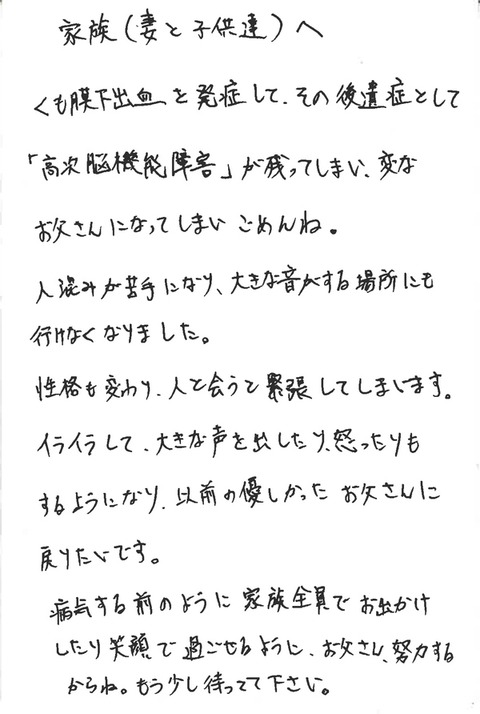 家族(妻と子供達)へ
くも膜下出血を発症して、その後遺症として
「高次脳機能障害」が残ってしまい、変な
お父さんになってしまいごめんね。
人混みが苦手になり、大きな音がする場所にも
行けなくなりました。
性格も変わり、人と会うと緊張してしまいます。
イライラして、大きな声を出したり、怒ったりも
するようになり、以前の優しかったお父さんに
戻りたいです。
病気する前のように家族全員でお出かけ
したり笑顔で過ごせるように、お父さん、努力する
からね。もう少し待ってて下さい。